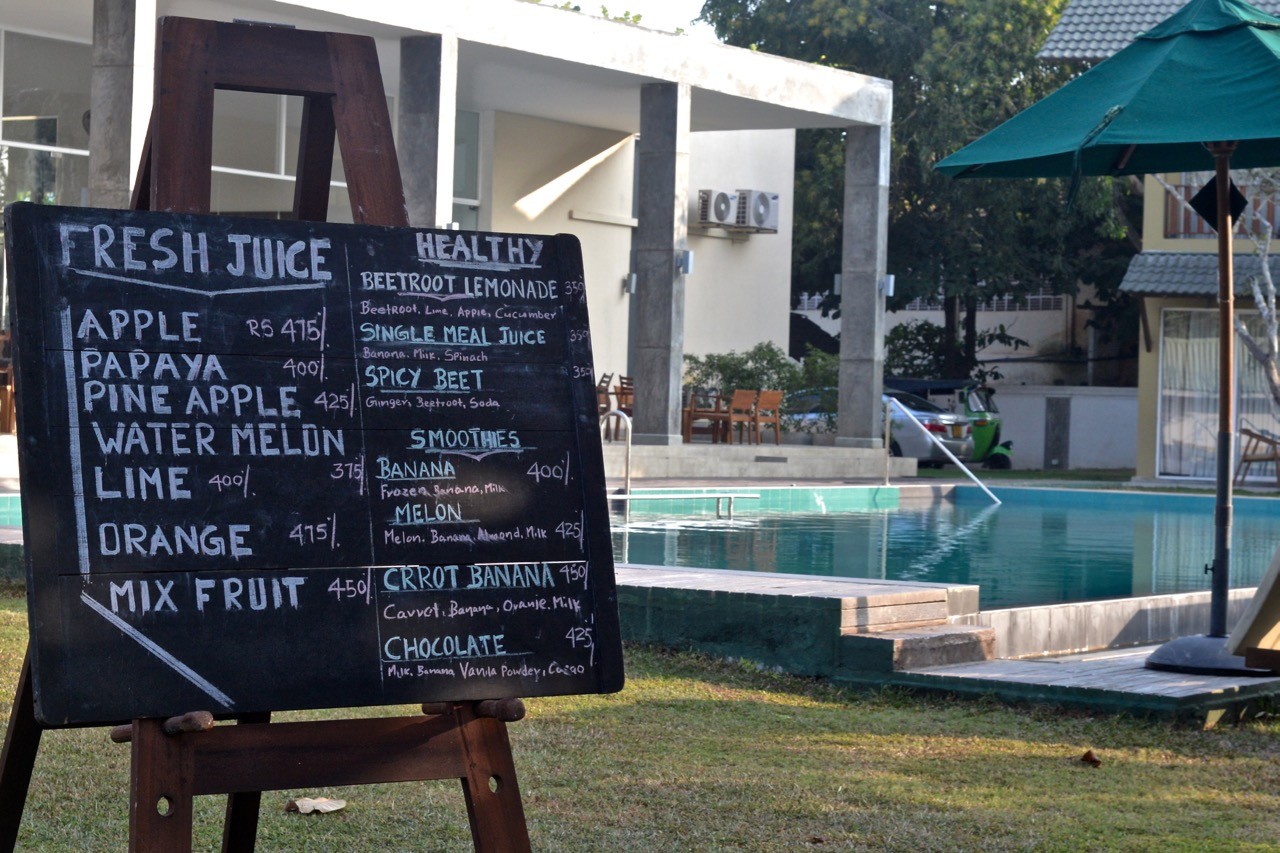 FRESH JUICE
APPLE RS 475/.
PAPAYA 400/.
PINE APPLE 425/
WATER MELON
375/
LIME 400/.
ORANGE 475/.
MIX FRUIT 450/
HEALTHY
BEETROOT LEMONADE 350
Beetroot, Lime, Apple, Cucumber
SINGLE MEAL JUICE 350
Banana, Milk, Spinach
SPICY BEET 350
Ginger, Beetroot, Soda
SMOOTHIES
BANANA 400/.
Frozen Banana, Milk
MELON
Melon, Banana, Almond, Milk 425/
CRROT BANANA 450/
Carrot, Banana, Oranje, Milk
CHOCOLATE 425/
Milk, Banana Vanila Powder, Cacao